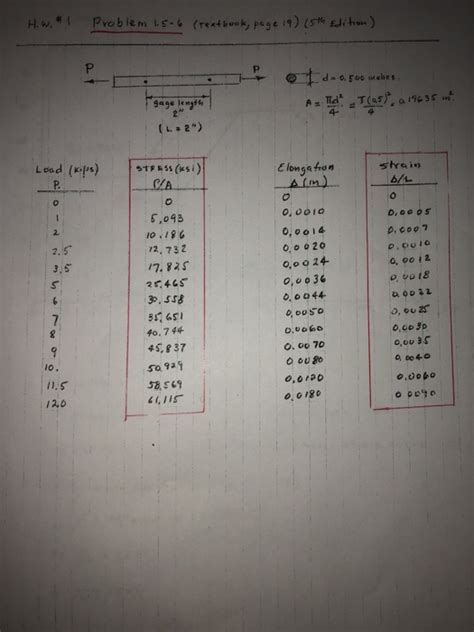 H.W. #1 Problem 1.5-6 (Textbook, page 19) (5th Edition)
P P
d = 0.500 inches.
gage length
2"
(L = 2")
A = πd²/4 = π(0.5)²/4 = 0.19635 in²
Load (kips) STRESS (ksi) Elongation Strain
P. P/A Δ (in) Δ/L
0 0 0 0
1 5,093 0,0010 0,0005
2 10,186 0,0014 0,0007
2.5 12,732 0,0020 0,0010
3.5 17,825 0,0024 0,0012
5 25,465 0,0036 0,0018
6 30,558 0,0044 0,0022
7 35,651 0,0050 0,0025
8 40,744 0,0060 0,0030
9 45,837 0,0070 0,0035
10. 50,929 0,0080 0,0040
11.5 58,569 0,0120 0,0060
12.0 61,115 0,0180 0.0090